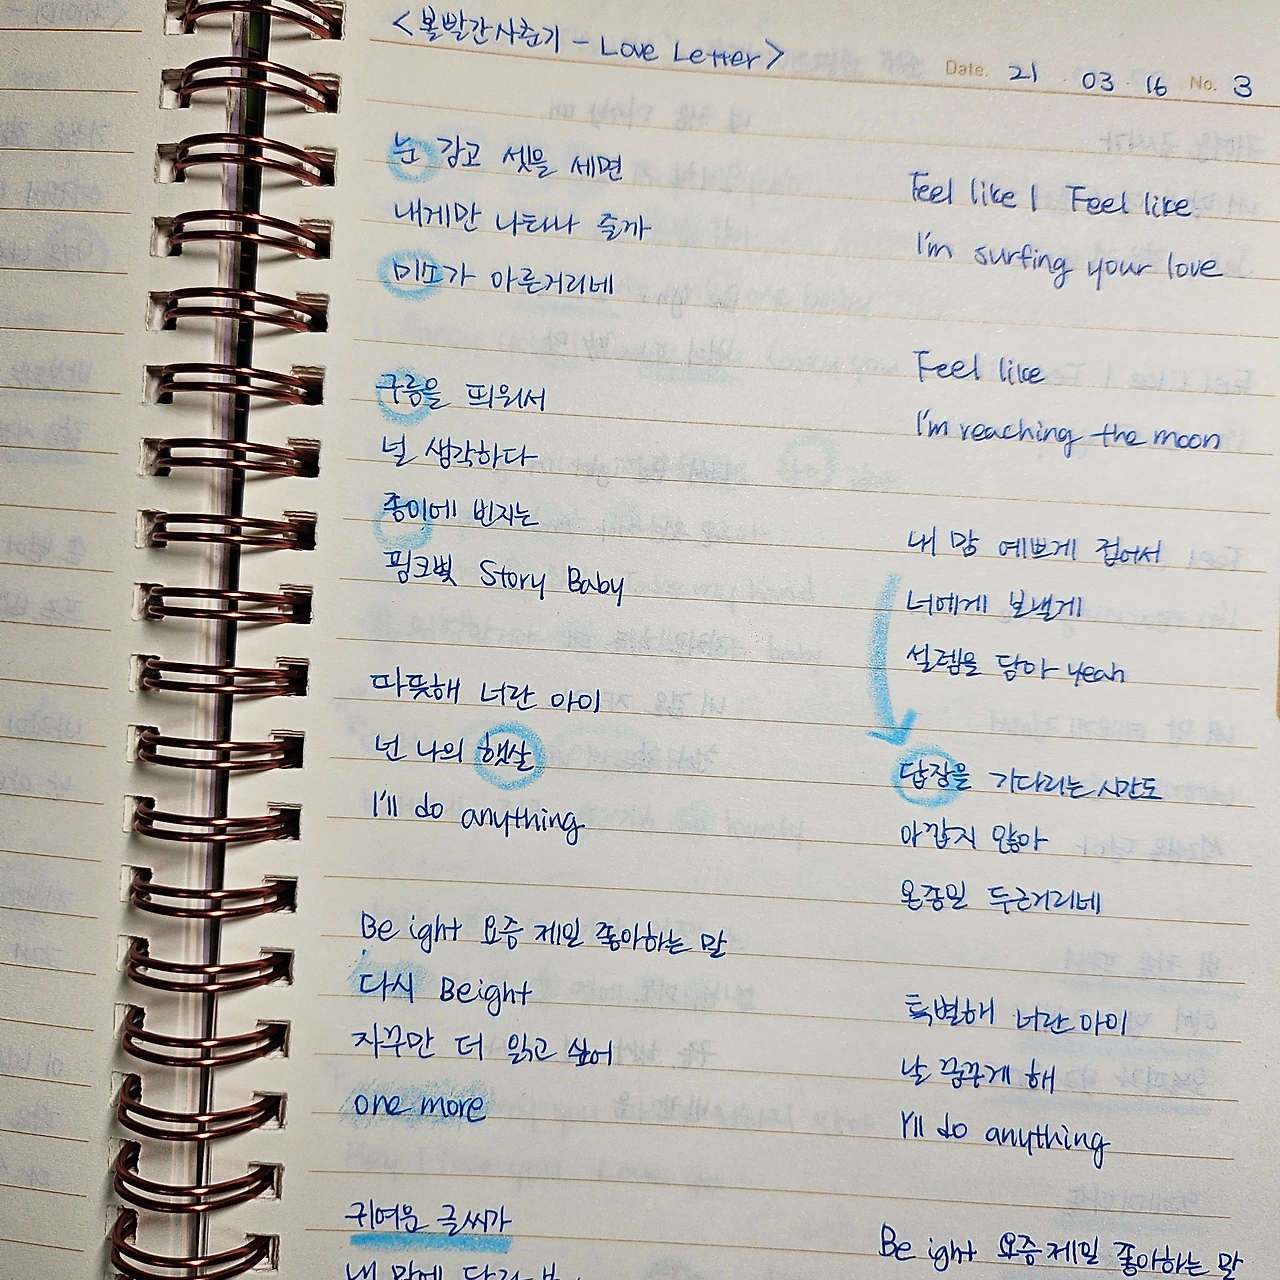 <볼빨간사춘기 - Love Letter>
Date. 21 . 03 . 16 No. 3
눈 감고 셋을 세면
내게만 나타나 줄까
미소가 아른거리네
구름을 띄워서
널 생각하다
종이에 번지는
핑크빛 Story Baby
따뜻해 너란 아이
넌 나의 햇살
I'll do anything
Be ight 요즘 제일 좋아하는 말
다시 Beight
자꾸만 더 읽고 싶어
one more
귀여운 글씨가
내 맘에
Feel like I Feel like
I'm surfing your love
Feel like
I'm reaching the moon
내 맘 예쁘게 접어서
너에게 보낼게
설렘을 담아 yeah
답장을 기다리는 시간도
아깝지 않아
온종일 두근거리네
특별해 너란 아이
날 꿈꾸게 해
I'll do anything
Be ight 요즘 제일 좋아하는 말